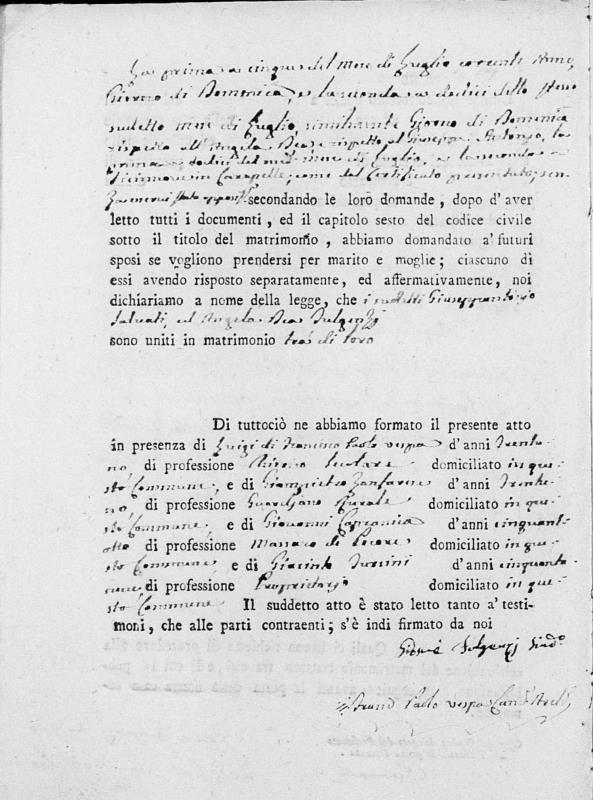 La prima a cinque del mese di Luglio corrente Anno,
Giorno di Domenica, e la seconda a dodici dello stesso
sudetto mese di Luglio, similmente Giorno di Domenica
rispetto all' Angela Rea; e rispetto al Giuseppe Antonio, la
prima a dodici del mese di Luglio, e la seconda a
in Carapelle, come dal Certificato presentato, sen-
secondando le loro domande, dopo d'aver
letto tutti i documenti, ed il capitolo sesto del codice civile
sotto il titolo del matrimonio, abbiamo domandato a' futuri
sposi se vogliono prendersi per marito e moglie; ciascuno di
essi avendo risposto separatamente, ed affermativamente, noi
dichiariamo a nome della legge, che i sudetti Giuseppantonio
Salvati, ed Angela Rea Fulgenzj
sono uniti in matrimonio tra di loro
Di tuttociò ne abbiamo formato il presente atto
in presenza di Luigi di Francesco Paolo Vespa d'anni trenta-
no, di professione domiciliato in que-
sto Commune, e di Giampietro d'anni trenta-
no, di professione Guardiano Rurale domiciliato in que-
sto Commune, e di Giovanni Capranica d'anni cinquant-
otto di professione Massaro di Pecore domiciliato in que-
sto Commune e di Giacinto d'anni cinquanta-
di professione Proprietario domiciliato in que-
sto Commune Il suddetto atto è stato letto tanto a' testi-
moni, che alle parti contraenti; s'è indi firmato da noi
Fulgenzj Sind.o
Paolo Vespa Canc.